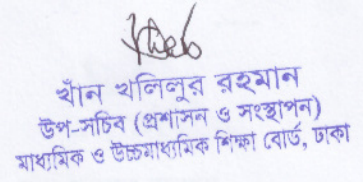 খাঁন খলিলুর রহমান
উপ-সচিব (প্রশাসন ও সংস্থাপন)
মাধ্যমিক ও উচ্চমাধ্যমিক শিক্ষা বোর্ড, ঢাকা